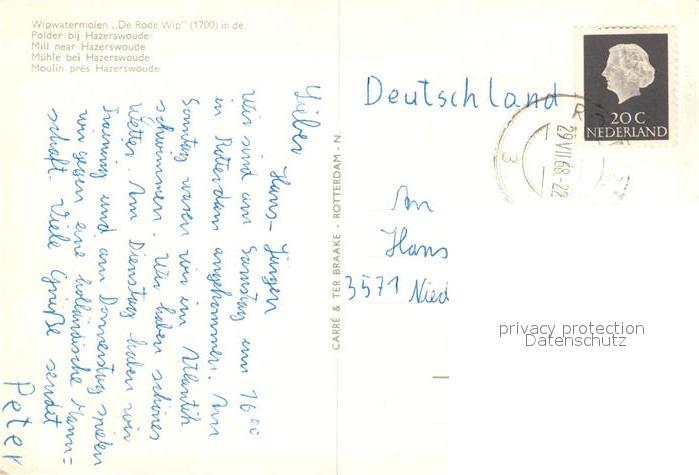 Wipwatermolen „De Rode Wip" (1700) in de
Polder bij Hazerswoude
Mill near Hazerswoude
Mühle bei Hazerswoude
Moulin près Hazerswoude
Lieber Hans-Jürgen
Wir sind am Samstag um 16 00
in Rotterdam angekommen. Am
Sonntag waren wir im Atlantik
schwimmen. Wir haben schönes
Wetter. Am Dienstag haben wir
Training und am Donnerstag spielen
wir gegen eine holländische Mann=
schaft. Viele Grüße sendet
Peter
CARRÉ & TER BRAAKE - ROTTERDAM - N.
20 C
NEDERLAND
29 VII 68-22
3
Deutschland
An
Hans
3571 Nied
privacy protection
Datenschutz